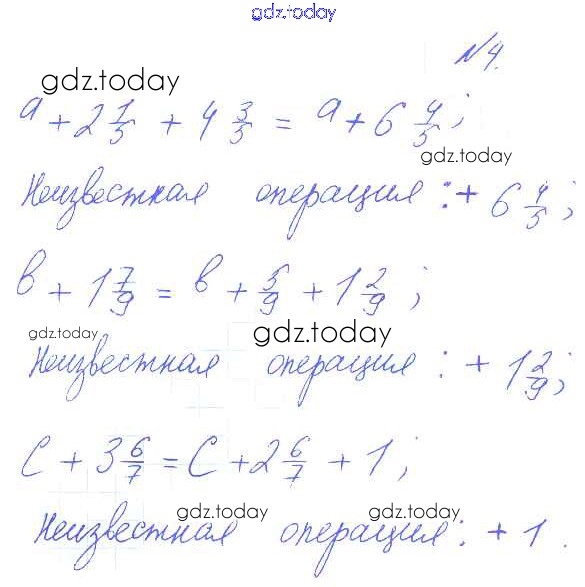 gdz.today
№4.
gdz.today
a + 2 1/5 + 4 3/5 = a + 6 4/5;
gdz.today
Неизвестная операция: + 6 4/5;
в + 1 7/9 = в + 5/9 + 1 2/9;
gdz.today gdz.today
Неизвестная операция: + 1 2/9;
c + 3 6/7 = c + 2 6/7 + 1;
gdz.today gdz.today
Неизвестная операция: + 1.